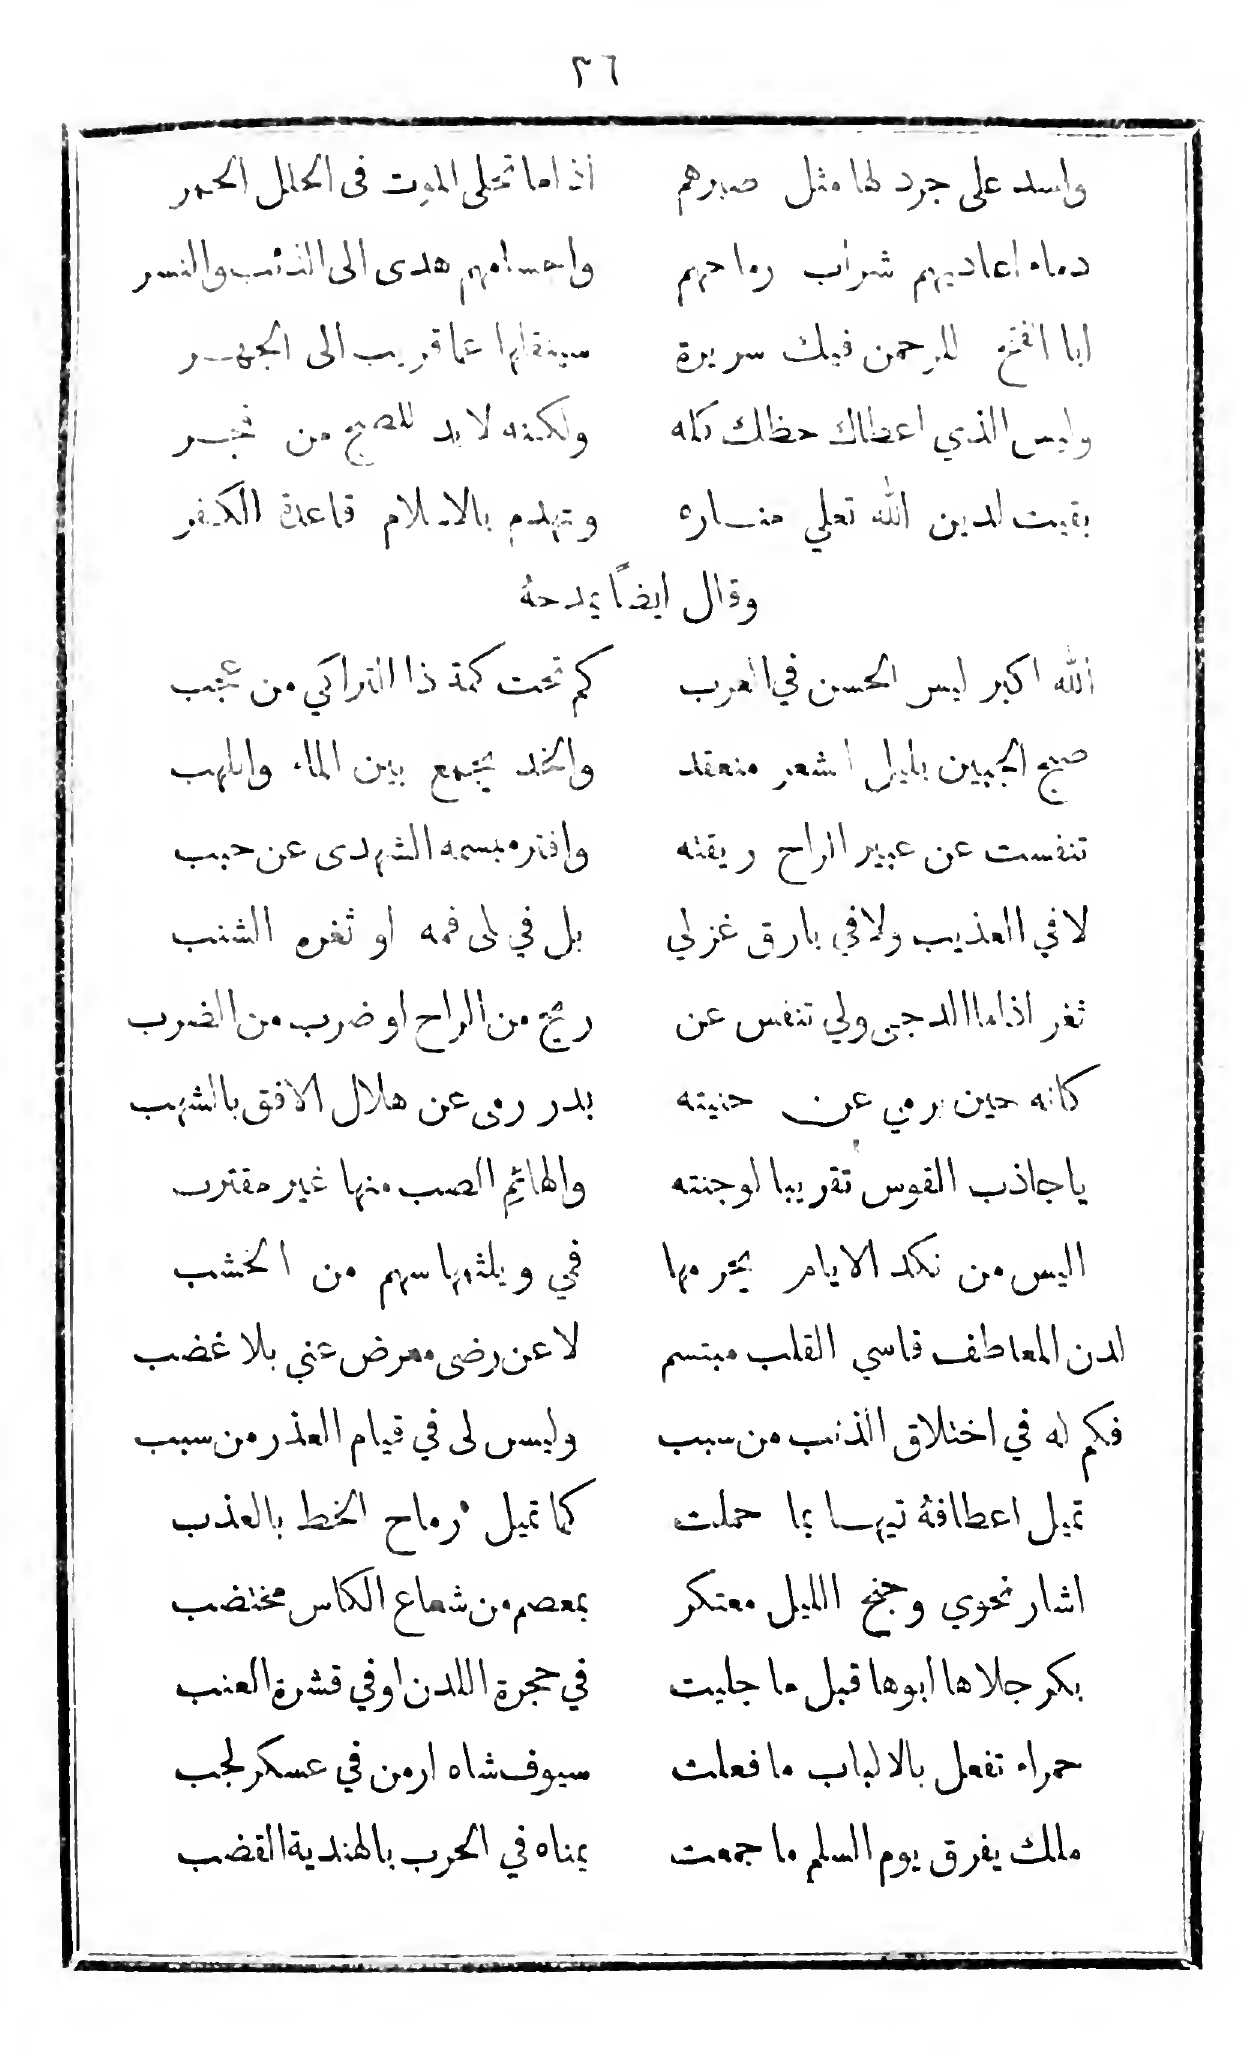 ٣٦
واسد على جرد لها مثل صبرهم اذا ما تجلى الموت فى الحلل الحمر
دماء اعاديهم شراب رماحهم واجسامهم هدى الى الذئب والنسر
ابا الفتح للرحمن فيك سريرة سينقلها عما قريب الى الجهر
وليس الذي اعطاك حظك كله ولكنه لا بد للصبح من فجر
بقيت لدين الله تعلي مناره وتهدم بالاسلام قاعدة الكفر
وقال ايضاً يمدحهُ
الله اكبر ليس الحسن في العرب كم تحت كمة ذا التراكي من عجب
صبح الجبين بليل الشعر منعقد والخد يجمع بين الماء واللهب
تنفست عن عبير الراح ريقته وافتر مبسمه الشهدى عن حبب
لا في العذيب ولا في بارق غزلي بل في لمى فمه او ثغره الشنب
ثغر اذا ما الدجى ولي تنفس عن ريح من الراح او ضرب من الضرب
كانه حين يرمي عن حنيته بدر رمى عن هلال الافق بالشهب
يا جاذب القوس تقريبا لوجنته والهائم الصب منها غير مقترب
اليس من نكد الايام يحرمها فمي ويلثمها سهم من الخشب
لدن المعاطف قاسي القلب مبتسم لا عن رضى معرض عني بلا غضب
فكم له في اختلاق الذنب من سبب وليس لى في قيام العذر من سبب
تميل اعطافهُ تيها بما حملت كما تميل رماح الخط بالعذب
اشار نحوي وجنح الليل معتكر بمعصم من شعاع الكاس مختضب
بكر جلاها ابوها قبل ما جليت في حجرة اللدن او في قشرة العنب
حمراء تفعل بالالباب ما فعلت سيوف شاه ارمن في عسكر لجب
ملك يفرق يوم السلم ما جمعت يمناه في الحرب بالهندية القضب